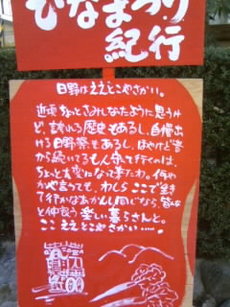 ひなまつり
紀行
日野はええとこやさかい。
近頃ちょっとさみしなったように思うけ
ど、誇れる歴史もあるし、自慢出け
る日野祭もあるし、ほやけど昔
から続いてるもん守って行くのは、
ちょっと大変になって来たわ。何や
かや言うても、わしらここで生き
て行かなあかんし、同じなら皆な
と仲良う楽しい暮らさんと。
ここええとこやさかい……。